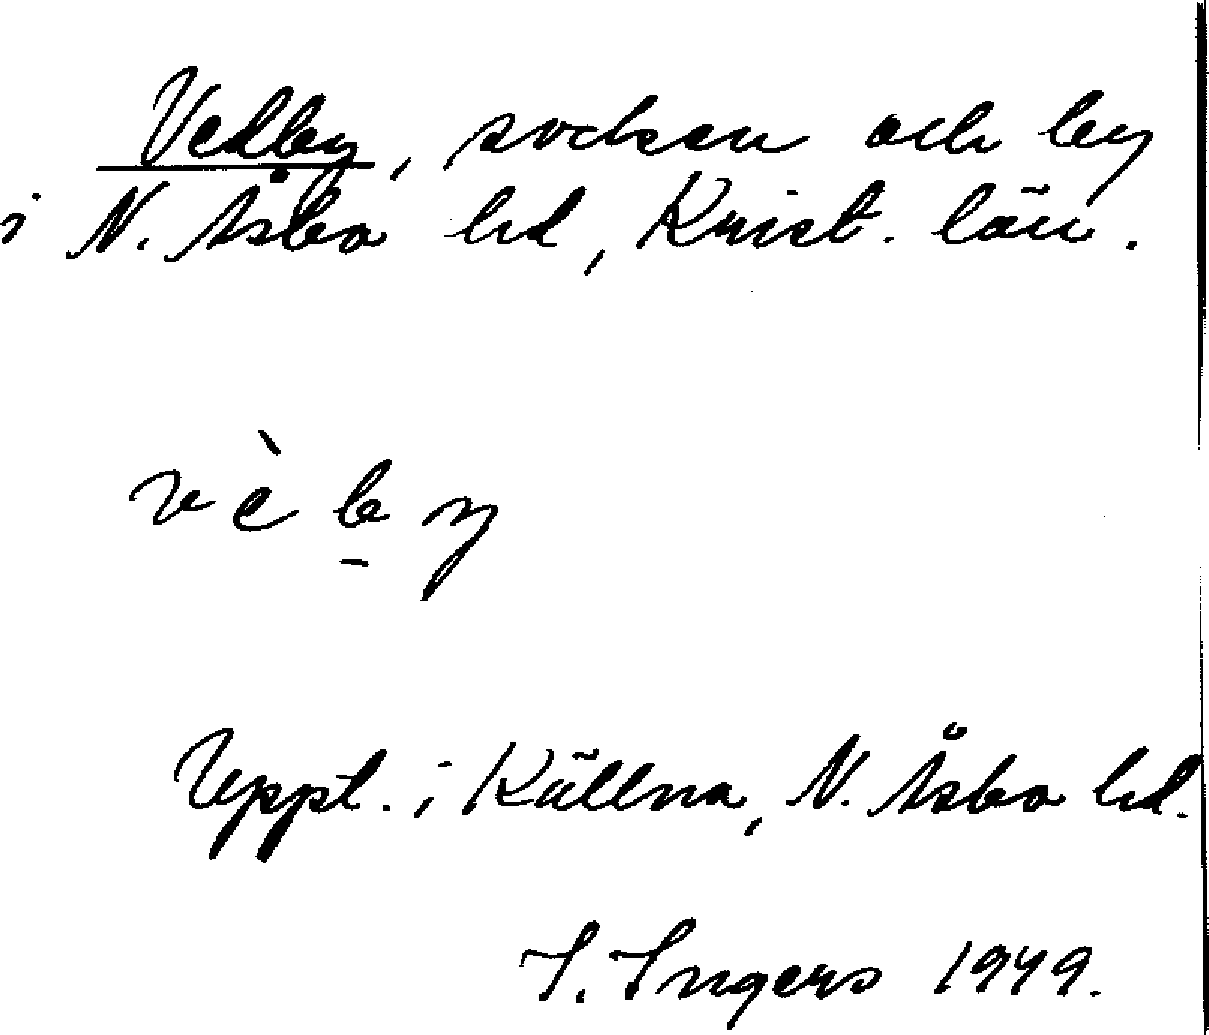 Vedby, socken och by
i N. Åsbo hd, Krist. län.
vèb̠y
Uppt. i Källna, N. Åsbo hd.
I. Ingers 1949.